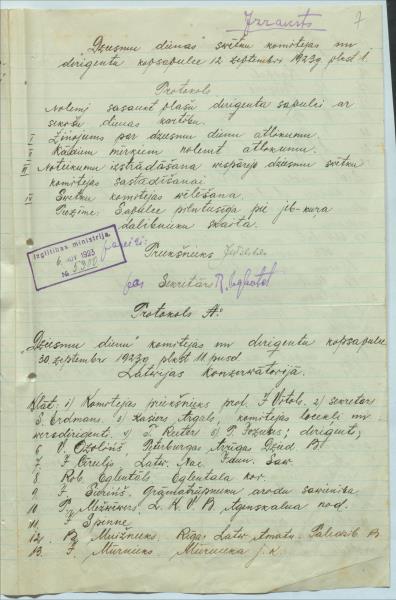 Izraksts 7
"Dziesmu dienas" svētku komitejas un
dirigentu kopsapulce 12 septembrī 1923g plkst 1.
Protokols
Nolemj sasaukt plašu dirigentu sapulci ar
sekošu dienas kārtību.
I Ziņojums par dziesmu dienu atlikumu.
II Kādiem mērķiem nolemt atlikumu.
III Noteikumu izstrādāšana vispārējo dziesmu svētku
komitejas sastādīšanai
IV Svētku komitejas vēlēšana.
Piezīme: Sapulce pilntiesīga pie jeb-kura
dalībnieku skaita.
Izglītības ministrija
6. nov 1923
№
Priekšnieks
Sekretārs
Protokols №
"Dziesmu dienu" komitejas un dirigentu kopsapulce
30 septembrī 1923g plkst 11 pusd
Latvijas Konzervatorijā.
Klāt: 1) Komitejas priekšnieks prof. J Vītols. 2) sekretārs
S. Erdmans 3) kasiers Argals, komitejas locekļi un
virsdirigenti. 4) T. Reiters 5) P. Jozuus; dirigenti,
6. V. Ozoliņš, Pēterburgas Dzied. B.
7. J Cīrulis Latv. Nac. Sav.
8 Rob. Eglentāls Eglentāla kor.
9. J. Grāmatrūpnieku arodu savienība
10. P. L. K. V. B. Agenskalna nod.
11. J Spenne
12. B. Muižnieks. Rīgas Latv. Amatn. Palīdzīb B.
13. J. Mūrnieks. Mūrnieka j. k.